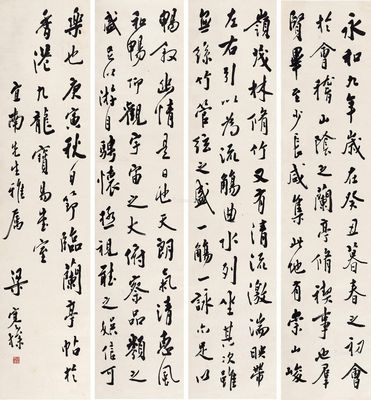 永和九年歲在癸丑暮春之初會
於會稽山陰之蘭亭脩禊事也羣
賢畢至少長咸集此地有崇山峻
嶺茂林脩竹又有清流激湍映帶
左右引以為流觴曲水列坐其次雖
無絲竹管弦之盛一觴一詠亦足以
暢敘幽情是日也天朗氣清惠風
和暢仰觀宇宙之大俯察品類之
盛所以游目騁懷極視聽之娛信可
樂也庚寅秋日節臨蘭亭帖於
香港九龍寶易堂室
宜南先生雅屬
梁寒操